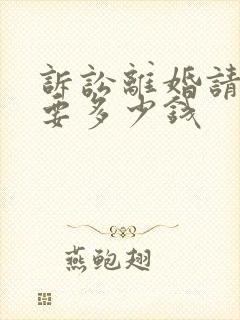 訴訟離婚請
要多少錢
燕鮑翅